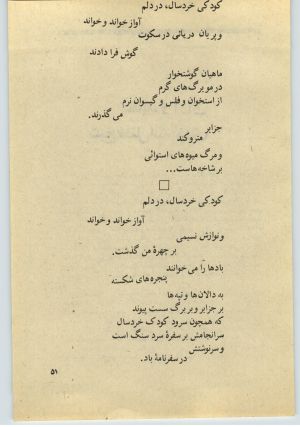 کودکی خردسال، در دلم
آواز خواند و خواند
و پریان دریائی در سکوت
گوش فرا دادند
ماهیان گوشتخوار
در مو برگ‌های گرم
از استخوان و فلس و گیسوان نرم
می گذرند.
جزایر
متروکند
و مرگ میوه‌های استوائی
بر شاخه‌هاست...
کودکی خردسال، در دلم
آواز خواند و خواند
و نوازش نسیمی
بر چهرهٔ من گذشت.
بادها را می خوانند
پنجره‌های شکسته
به دالان‌ها و تپه‌ها
بر جزایر و بر برگ سست پیوند
که همچون سرود کودک خردسال
سرانجامش بر سفرهٔ سرد سنگ است
و سرنوشتش
در سفرنامهٔ باد.
۵۱